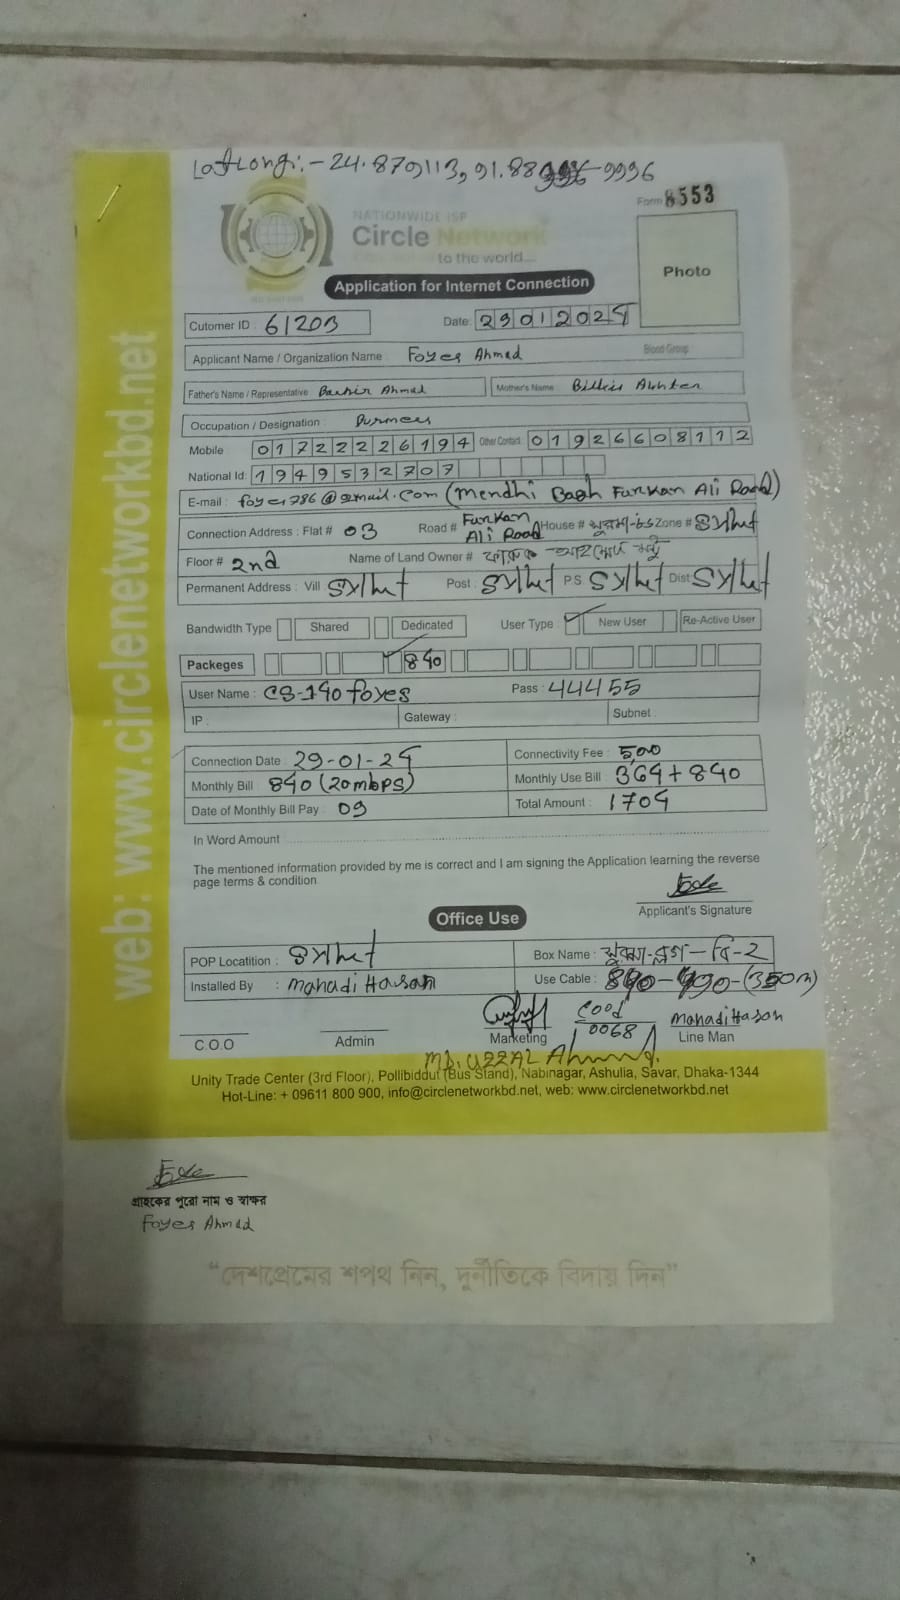 LatLong:- 24.879113, 91.88 9996
Form 8553
NATIONWIDE ISP
Circle Network
to the world....
Photo
Application for Internet Connection
Cutomer ID : 61203 Date: 29012024
Applicant Name / Organization Name : Foyes Ahmed Blood Group :
Father's Name / Representative Bashir Ahmed Mother's Name Billkis Akhter
Occupation / Designation :
Mobile 01722226194 Other Contact 01926608112
National Id: 1949532707
E-mail : foyes786@gmail.com (Mendhi Bagh Furkan Ali Road)
Connection Address : Flat # 03 Road # Furkan Ali Road House # Zone # Sylhet
Floor # 2nd Name of Land Owner #
Permanent Address : Vill Sylhet Post : Sylhet P.S. Sylhet Dist Sylhet
Bandwidth Type Shared Dedicated User Type : New User Re-Active User
Packeges 840
User Name : CS-140 foyes Pass : 44455
IP : Gateway : Subnet :
Connection Date : 29-01-24 Connectivity Fee : 500
Monthly Bill : 840 (20mbps) Monthly Use Bill : 364 + 840
Date of Monthly Bill Pay : 09 Total Amount : 1704
In Word Amount :
The mentioned information provided by me is correct and I am signing the Application learning the reverse
page terms & condition
Applicant's Signature
Office Use
POP Locatition : Sylhet Box Name :
Installed By : Mahadi Hasan Use Cable : (350m)
C.O.O Admin Marketing 0068 Mahadi Hason Line Man
MD. UZZAL Ahmed.
Unity Trade Center (3rd Floor), Pollibiddut (Bus Stand), Nabinagar, Ashulia, Savar, Dhaka-1344
Hot-Line: + 09611 800 900, info@circlenetworkbd.net, web: www.circlenetworkbd.net
web: www.circlenetworkbd.net
গ্রাহকের পুরো নাম ও স্বাক্ষর
Foyes Ahmed
“দেশপ্রেমের শপথ নিন, দুর্নীতিকে বিদায় দিন”